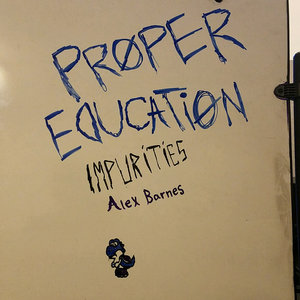 PRØPER
EDUCATIØN
IMPURiTiES
Alex Barnes